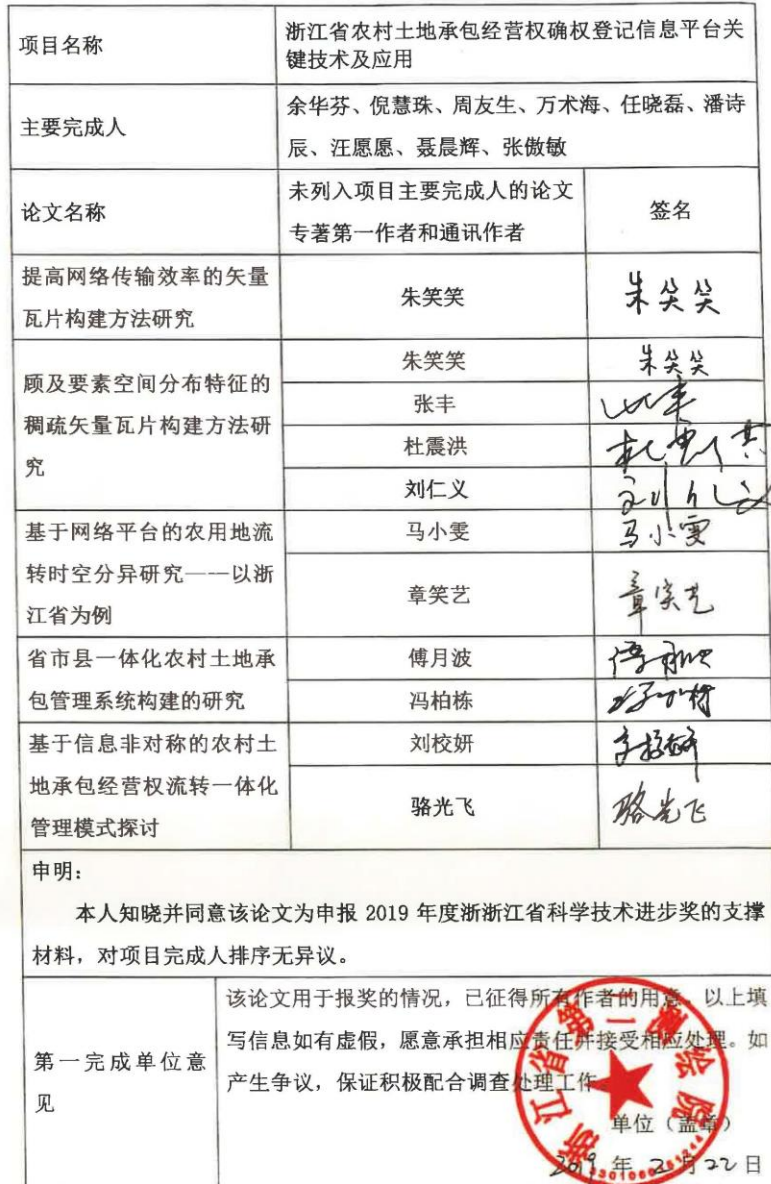 项目名称
浙江省农村土地承包经营权确权登记信息平台关
键技术及应用
主要完成人
余华芬、倪慧珠、周友生、万术海、任晓磊、潘诗
辰、汪愿愿、聂晨辉、张傲敏
论文名称
未列入项目主要完成人的论文
专著第一作者和通讯作者
签名
提高网络传输效率的矢量
瓦片构建方法研究
朱笑笑
朱笑笑
顾及要素空间分布特征的
稠疏矢量瓦片构建方法研
究
朱笑笑
朱笑笑
张丰
杜震洪
刘仁义
基于网络平台的农用地流
转时空分异研究——以浙
江省为例
马小雯
马小雯
章笑艺
章笑艺
省市县一体化农村土地承
包管理系统构建的研究
傅月波
冯柏栋
基于信息非对称的农村土
地承包经营权流转一体化
管理模式探讨
刘校妍
骆光飞
骆光飞
申明：
本人知晓并同意该论文为申报 2019 年度浙浙江省科学技术进步奖的支撑
材料，对项目完成人排序无异议。
第一完成单位意
见
该论文用于报奖的情况，已征得所有作者的用意。以上填
写信息如有虚假，愿意承担相应责任并接受相应处理。如
产生争议，保证积极配合调查处理工作
单位（盖章）
2019 年 2 月 22 日
浙江省第二测绘院